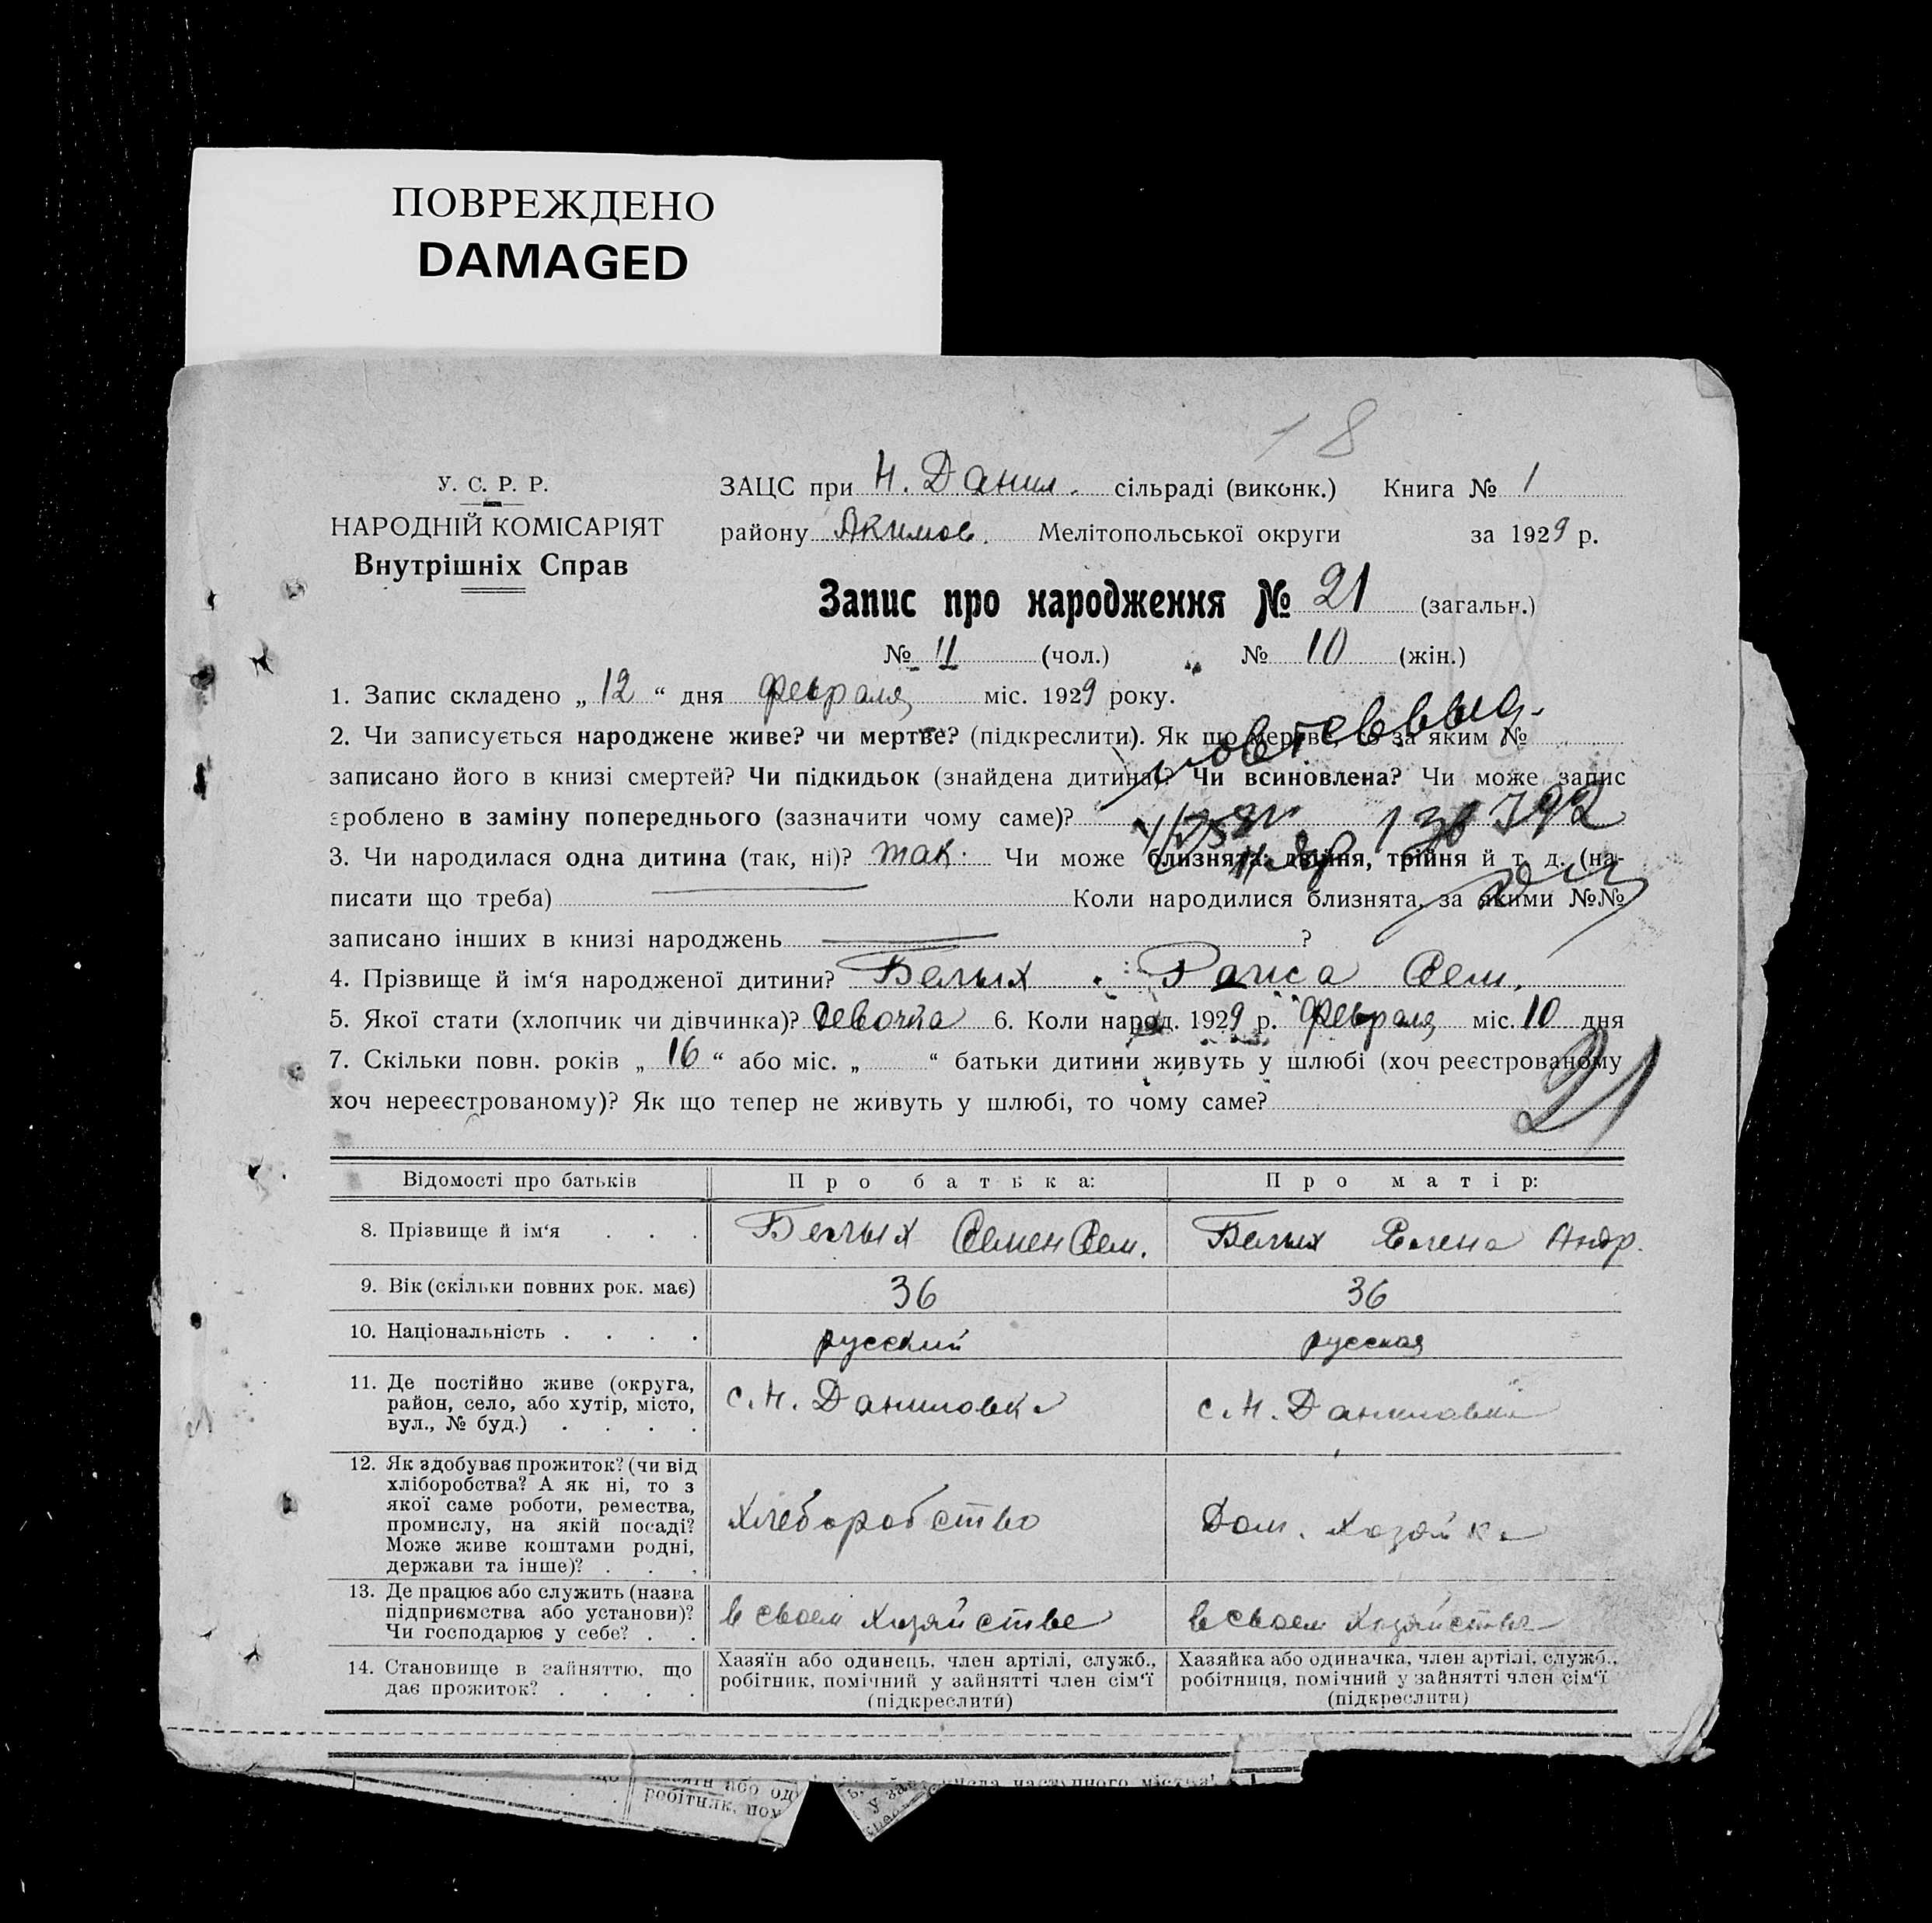 ПОВРЕЖДЕНО
DAMAGED
18
У. С. Р. Р.
НАРОДНІЙ КОМІСАРІЯТ
Внутрішніх Справ
ЗАЦС при Н. Данил. сільраді (виконк.) Книга № 1
району Акимов. Мелітопольської округи за 1929 р.
Запис про народження № 21 (загальн.)
№ 11 (чол.) № 10 (жін.)
1. Запис складено „ 12 “ дня февраля міс. 1929 року.
2. Чи записується народжене живе? чи мертве? (підкреслити). Як що мертве, то за яким №
записано його в книзі смертей? Чи підкидьок (знайдена дитина)? Чи всиновлена? Чи може запис
зроблено в заміну попереднього (зазначити чому саме)?
3. Чи народилася одна дитина (так, ні)? так. Чи може близнята: двійня, трійня й т. д. (на-
писати що треба) Коли народилися близнята, за якими №№
записано інших в книзі народжень ?
4. Прізвище й ім‘я народженої дитини? Белых Раиса Сем.
5. Якої стати (хлопчик чи дівчинка)? девочка 6. Коли народ. 1929 р. февраля міс. 10 дня
7. Скільки повн. років „ 16 “ або міс. „ “ батьки дитини живуть у шлюбі (хоч реєстрованому
хоч нереєстрованому)? Як що тепер не живуть у шлюбі, то чому саме?
21
Відомості про батьків Про батька: Про матір:
8. Прізвище й ім‘я . . . Белых Семен Сем. Белых Елена Андр.
9. Вік (скільки повних рок. має) 36 36
10. Національність . . . . русский русская
11. Де постійно живе (округа,
район, село, або хутір, місто,
вул., № буд.) . . . .
с. Н. Даниловка с. Н. Даниловка
12. Як здобуває прожиток? (чи від
хліборобства? А як ні, то з
якої саме роботи, ремества,
промислу, на якій посаді?
Може живе коштами родні,
держави та інше)? . . .
Хлеборобство Дом. хозяйка
13. Де працює або служить (назва
підприємства або установи)?
Чи господарює у себе? . .
в своем хозяйстве в своем хозяйстве
14. Становище в зайняттю, що
дає прожиток? . . . .
Хазяїн або одинець, член артілі, служб.,
робітник, помічний у зайнятті член сім‘ї
(підкреслити)
Хазяйка або одиначка, член артілі, служб.,
робітниця, помічний у зайнятті член сім‘ї
(підкреслити)
або од
робітник, пом